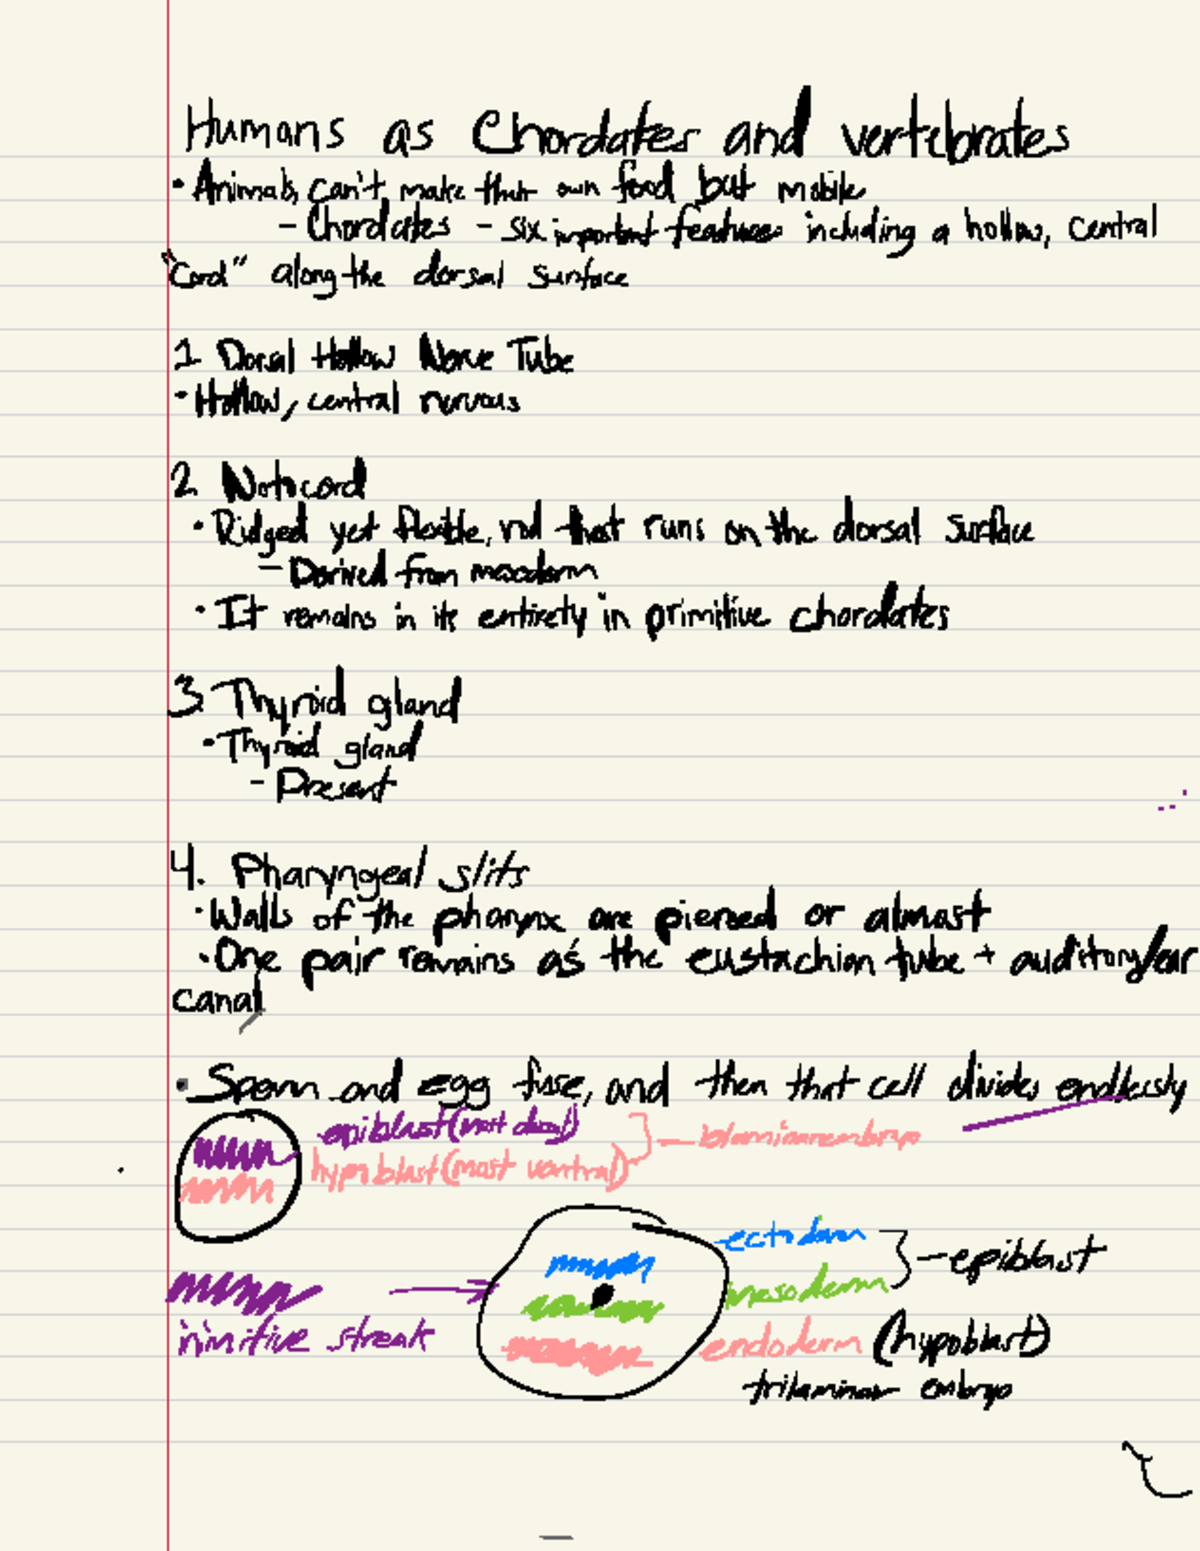 Humans as Chordates and vertebrates
• Animals can't make their own food but mobile
– Chordates – six important features including a hollow, central
"Cord" along the dorsal surface
1 Dorsal Hollow Nerve Tube
• Hollow, central nervous
2 Notocord
• Ridged yet flexible, rod that runs on the dorsal surface
– Derived from mesoderm
• It remains in its entirety in primitive chordates
3 Thyroid gland
• Thyroid gland
– Present
4. Pharyngeal slits
• Walls of the pharynx are pierced or almost
• One pair remains as the eustachion tube + auditory/ear
canal
• Sperm and egg fuse, and then that cell divides endlessly
epiblast (most dorsal)
hypoblast (most ventral) – bilaminar embryo
ectoderm
– epiblast
mesoderm
primitive streak
endoderm (hypoblast)
trilaminar embryo